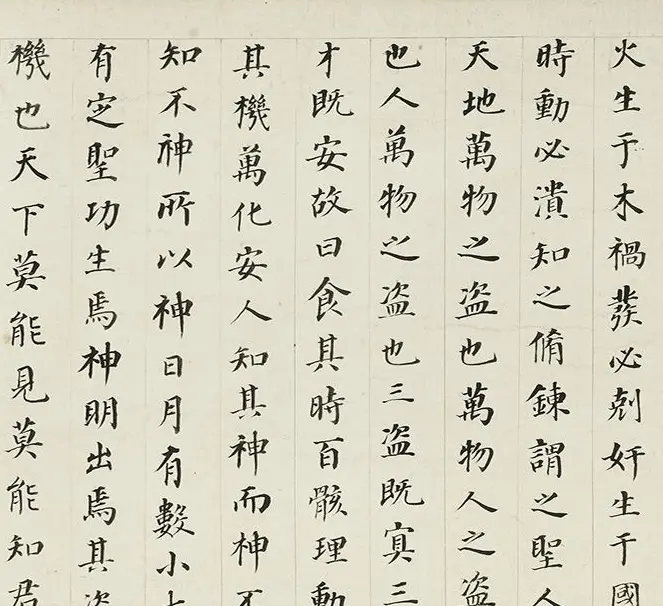 火生于木禍發必剋奸生于國
時動必潰知之脩鍊謂之聖人
天地萬物之盗也萬物人之盗
也人萬物之盗也三盗既㝠三
才既安故曰食其時百骸理動
其機萬化安人知其神而神不
知不神所以神日月有數小大
有㝎聖功生焉神明出焉其盗
機也天下莫能見莫能知君